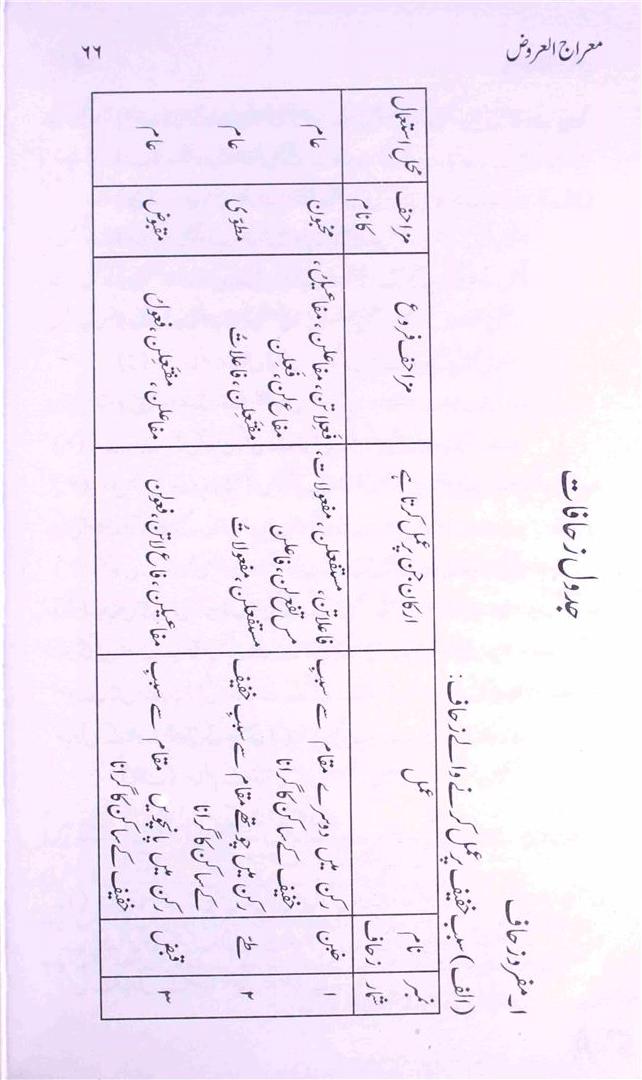 معراج العروض
۶۶
جدول زحافات
۱۔ مفرد زحاف
(الف) سبب خفیف پر عمل کرنے والے زحاف:
نمبر شمار | نام زحاف | عمل | ارکان جن پر عمل کرتا ہے | مزاحف فروع | مزاحف کا نام | محل استعمال
۱ | خبن | رکن میں دوسرے مقام سے سببِ | فاعلاتن، مستفعلن، مفعولات، | فَعِلاتن، مفاعلن، مفاعیل، | مخبون | عام
خفیف کے ساکن کا گرانا | مس تفع لن، فاعلن | مفاع لن، فَعِلن
۲ | طے | رکن میں چوتھے مقام سے سببِ خفیف | مستفعلن، مفعولات | مفتَعِلن، فاعلات | مطوّی | عام
کے ساکن کا گرانا
۳ | قبض | رکن میں پانچویں مقام سے سببِ | مفاعیلن، فاع لاتن، فعولن | مفاعلن، مفتَعِلن، فعول | مقبوض | عام
خفیف کے ساکن کا گرانا